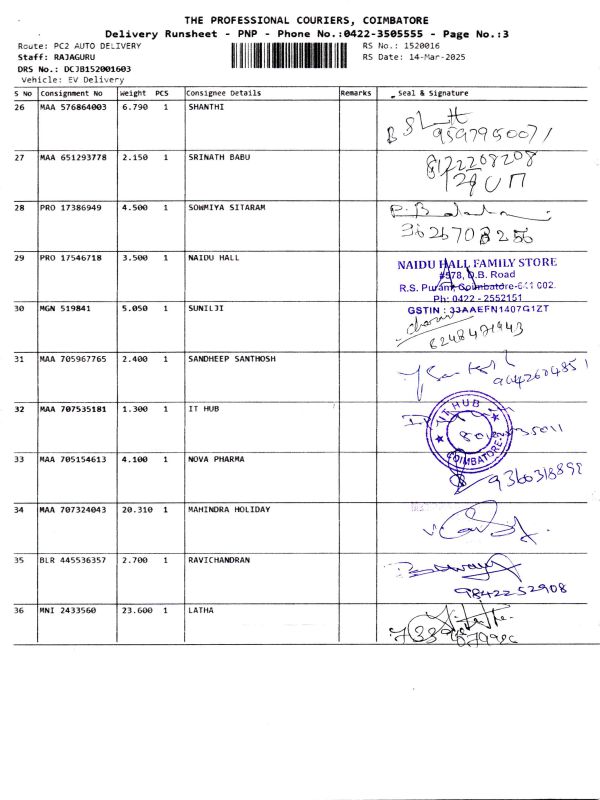 THE PROFESSIONAL COURIERS, COIMBATORE
Delivery Runsheet - PNP - Phone No.:0422-3505555 - Page No.:3
Route: PC2 AUTO DELIVERY RS No.: 1520016
Staff: RAJAGURU RS Date: 14-Mar-2025
DRS No.: DCJB152001603
Vehicle: EV Delivery
S No Consignment No Weight PCS Consignee Details Remarks Seal & Signature
26 MAA 576864003 6.790 1 SHANTHI
9597950071
27 MAA 651293778 2.150 1 SRINATH BABU
8122208208
28 PRO 17386949 4.500 1 SOWMIYA SITARAM
29 PRO 17546718 3.500 1 NAIDU HALL
NAIDU HALL FAMILY STORE
#578, D.B. Road
R.S. Puram, Coimbatore-641 002.
Ph: 0422 - 2552151
GSTIN : 33AAEFN1407G1ZT
30 MGN 519841 5.050 1 SUNILJI
31 MAA 705967765 2.400 1 SANDHEEP SANTHOSH
32 MAA 707535181 1.300 1 IT HUB
IT HUB
COIMBATORE-2
33 MAA 705154613 4.100 1 NOVA PHARMA
34 MAA 707324043 20.310 1 MAHINDRA HOLIDAY
35 BLR 445536357 2.700 1 RAVICHANDRAN
9842252908
36 MNI 2433560 23.600 1 LATHA